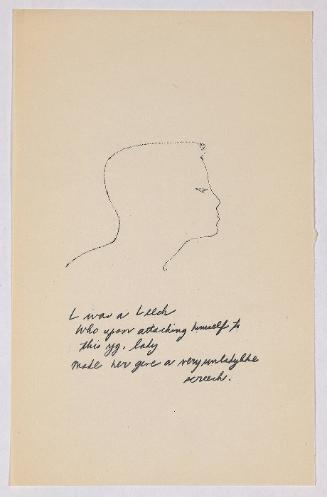 L was a Leech
Who upon attaching himself to
this yg. lady
made her give a very unladylike
screech.